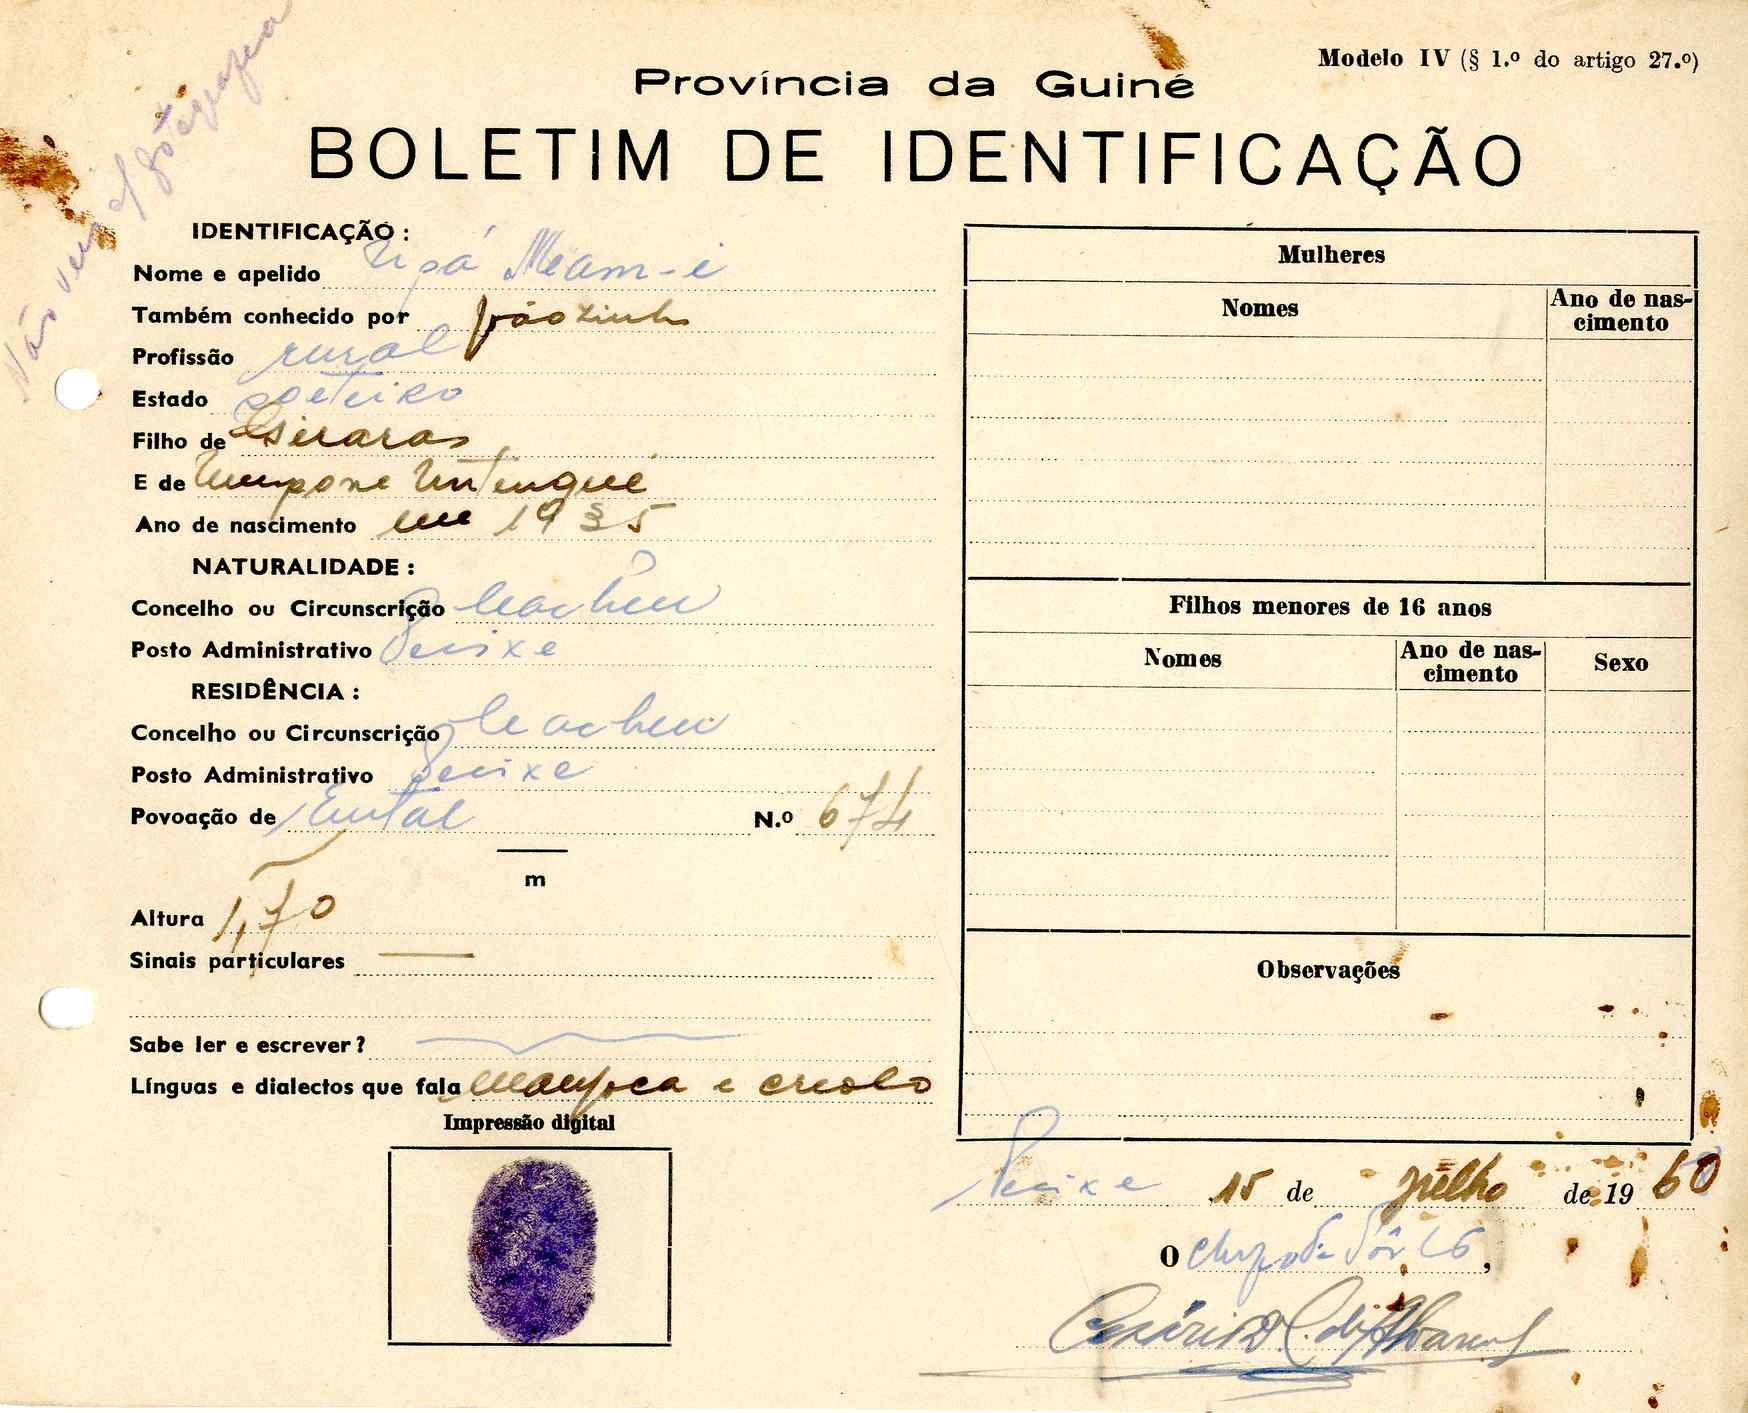 Não veio c/ fotografia
Modelo IV (§ 1.º do artigo 27.º)
Província da Guiné
BOLETIM DE IDENTIFICAÇÃO
IDENTIFICAÇÃO :
Nome e apelido
Também conhecido por Joãozinho
Profissão rural
Estado solteiro
Filho de
E de
Ano de nascimento em 1935
NATURALIDADE :
Concelho ou Circunscrição Cacheu
Posto Administrativo Pecixe
RESIDÊNCIA :
Concelho ou Circunscrição Cacheu
Posto Administrativo Pecixe
Povoação de N.º 674
m
Altura 1,70
Sinais particulares —
Sabe ler e escrever?
Línguas e dialectos que fala Manjaca e creolo
Impressão digital
Mulheres
Nomes
Ano de nas-
cimento
Filhos menores de 16 anos
Nomes
Ano de nas-
cimento
Sexo
Observações
Pecixe 15 de julho de 19 60
O Chefe de ,